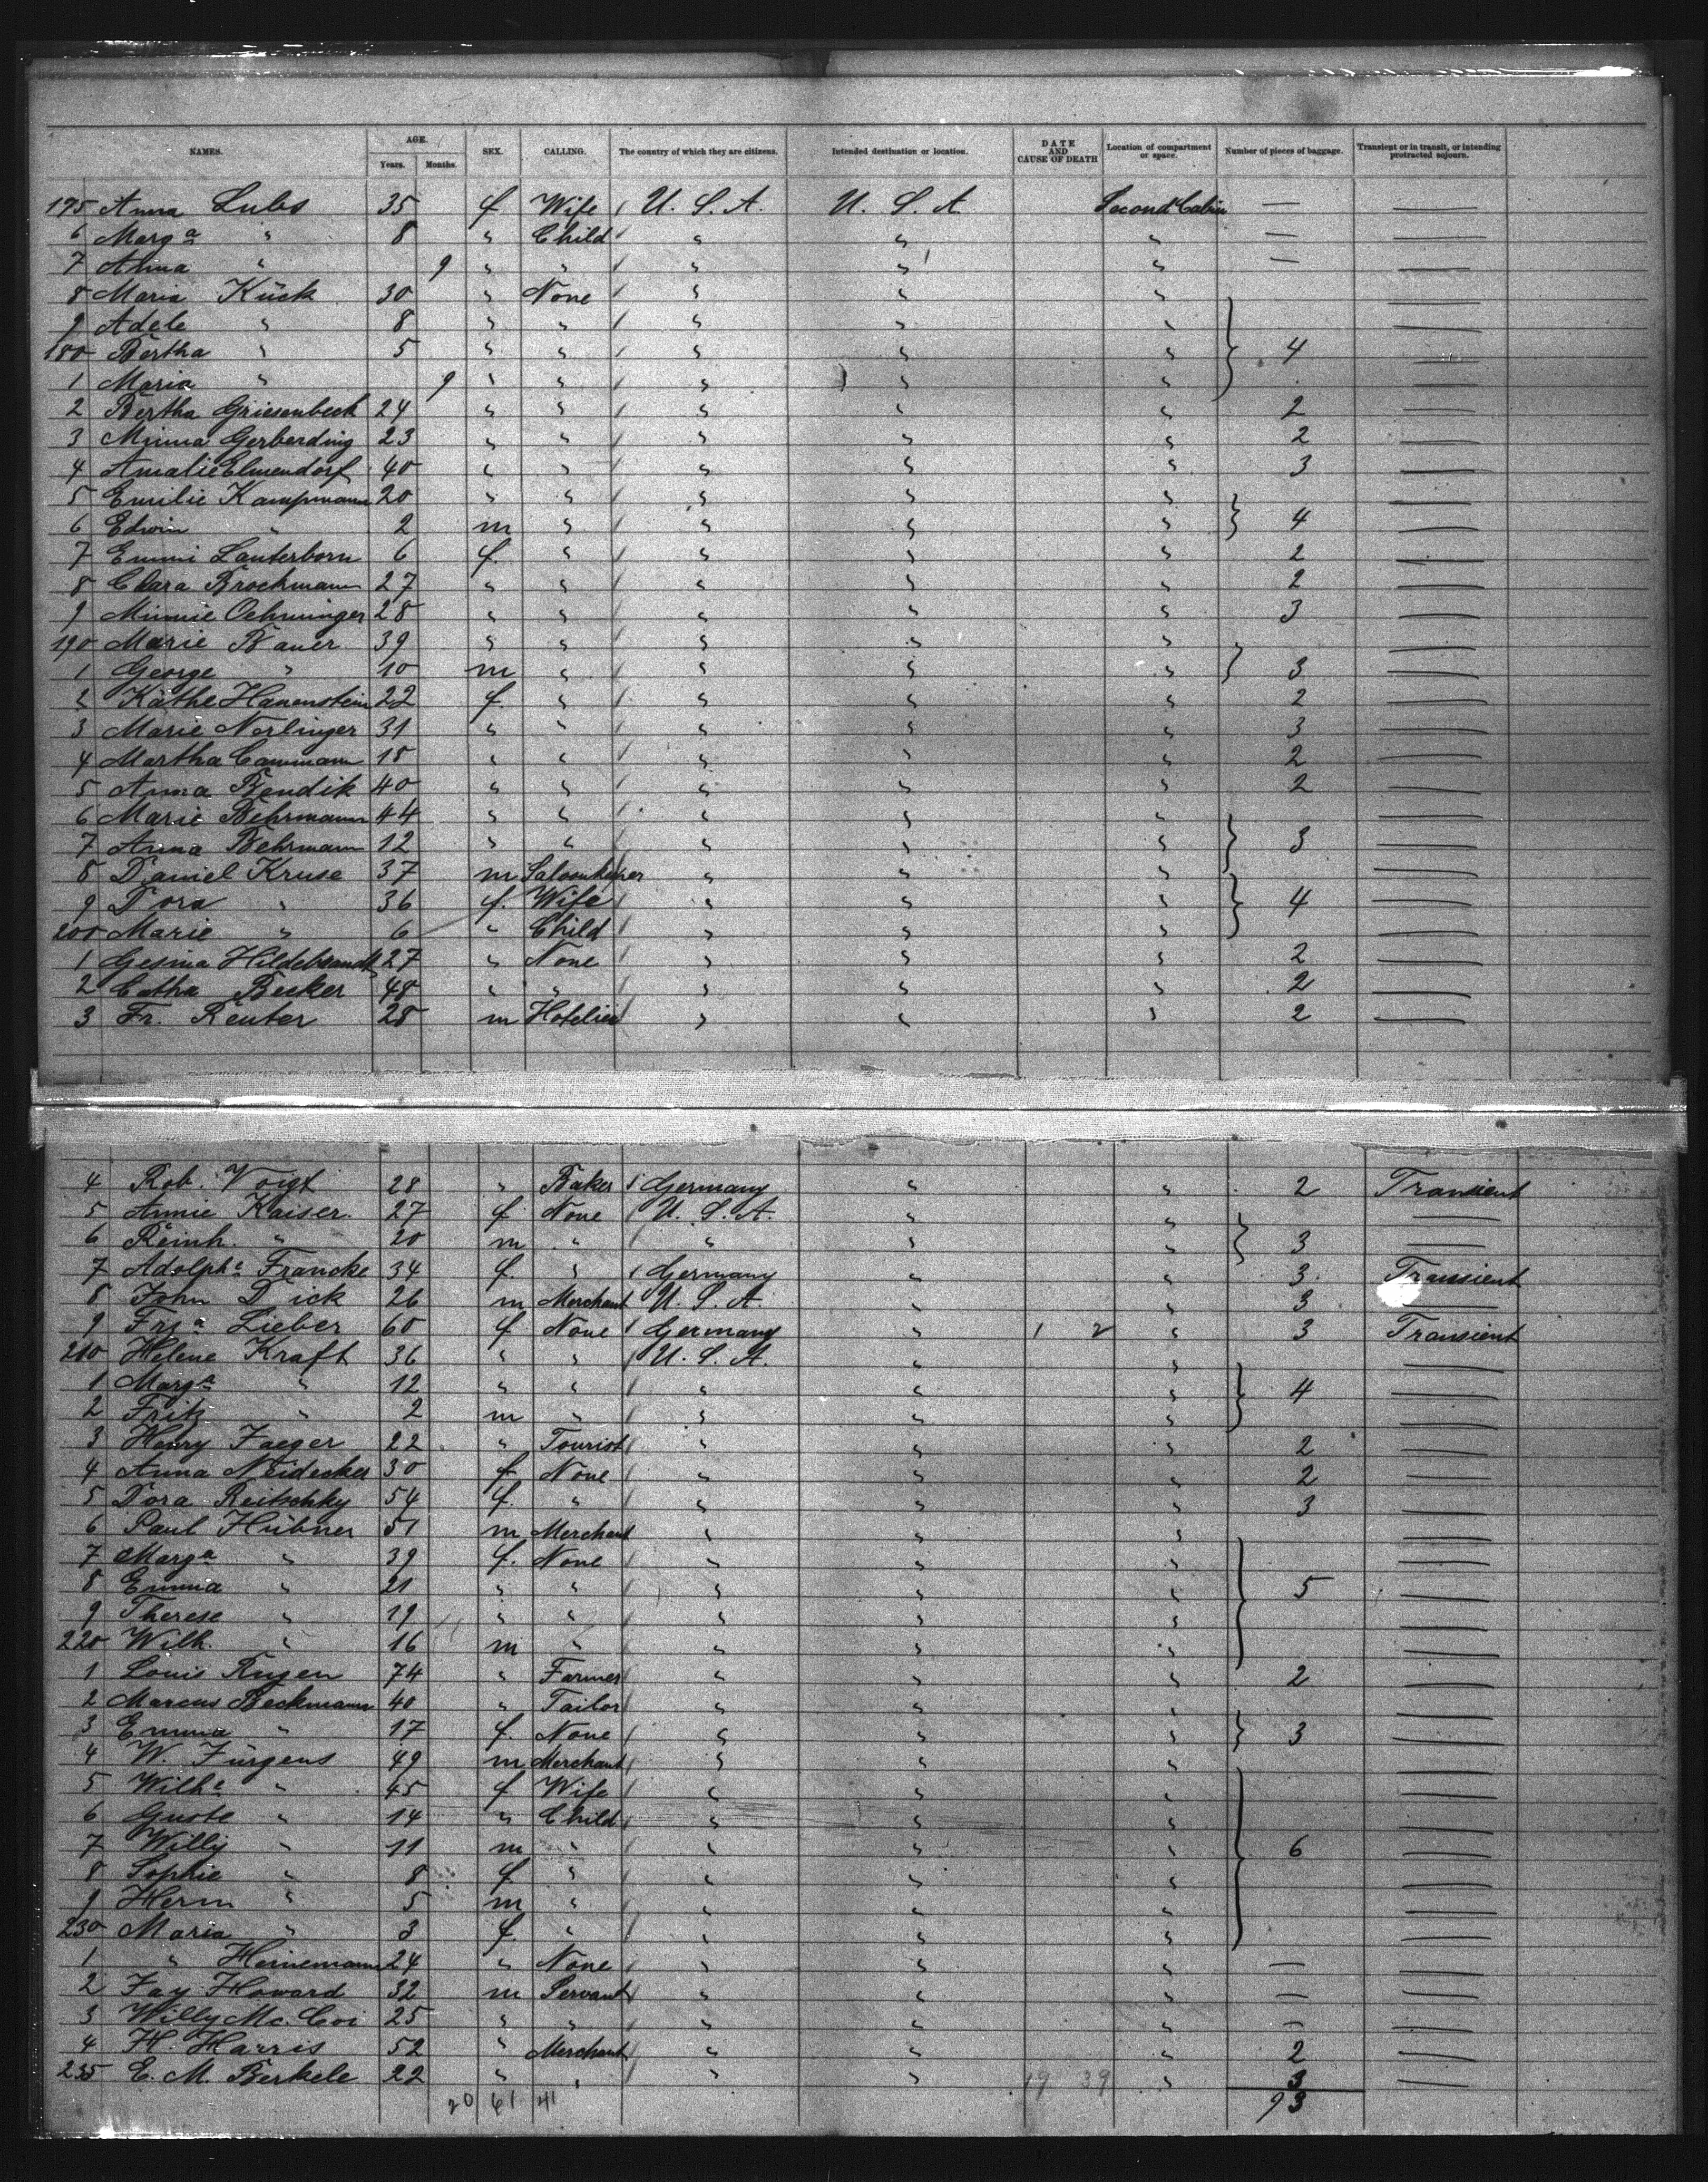 NAMES. AGE. Years. Months. SEX. CALLING. The country of which they are citizens. Intended destination or location. DATE AND CAUSE OF DEATH Location of compartment or space. Number of pieces of baggage. Transient or in transit, or intending protracted sojourn.
175 Anna Lubs 35 f Wife U. S. A. U. S. A Second Cabin —
6 Marga " 8 " Child " " " —
7 Anna " 9 " " " " " —
8 Maria Kück 30 " None " " "
9 Adele " 8 " " " " "
180 Bertha " 5 " " " " " 4
1 Maria " 9 " " " " "
2 Bertha Griesenbeck 24 " " " " " 2
3 Minna Gerberding 23 " " " " " 2
4 Amalie Elmendorf 40 " " " " " 3
5 Emilie Kampmann 20 " " " " "
6 Edwin " 2 m " " " " 4
7 Emmi Lauterborn 6 f. " " " " 2
8 Clara Brockmann 27 " " " " " 2
9 Minnie Oehninger 28 " " " " " 3
190 Marie Bauer 39 " " " " "
1 George " 10 m " " " " 3
2 Käthe Hanenstein 22 f. " " " " 2
3 Marie Nerlinger 31 " " " " " 3
4 Martha Cammann 18 " " " " " 2
5 Anna Bendik 40 " " " " " 2
6 Marie Behrmann 44 " " " " "
7 Anna Behrmann 12 " " " " " 3
8 Daniel Kruse 37 m Saloonkeeper " " "
9 Dora " 36 f. Wife " " " 4
200 Marie " 6 " Child " " "
1 Gesina Hildebrandt 27 " None " " " 2
2 Catha Becker 48 " " " " " 2
3 Fr. Reuter 28 m Hotelier " " " 2
4 Rob. Voigt 28 " Baker Germany " " 2 Transient
5 Annie Kaiser 27 f None U. S. A. " "
6 Reinh. " 20 m " " " " 3
7 Adolphe Francke 34 f. " Germany " " 3 Transient
8 John Dick 26 m Merchant U. S. A. " " 3
9 Lieber 60 f None Germany " 1 2 " 3 Transient
210 Helene Kraft 36 " " U. S. A. " "
1 Marga " 12 " " " " " 4
2 Fritz " 2 m " " " "
3 Henry Jaeger 22 " Tourist " " " 2
4 Anna Neidecker 30 f None " " " 2
5 Dora Reitschky 54 f. " " " " 3
6 Paul Hübner 51 m Merchant " " "
7 Marga " 39 f. None " " "
8 Emma " 21 " " " " " 5
9 Therese " 19 " " " " "
220 Wilh. " 16 m " " " "
1 Louis Rugen 74 " Farmer " " " 2
2 Marcus Beckmann 40 " Tailor " " "
3 Emma " 17 f. None " " " 3
4 W. Jürgens 49 m Merchant " " "
5 Wilhe " 45 f Wife " " "
6 Guste " 14 " Child " " "
7 Willy " 11 m " " " " 6
8 Sophie " 8 f " " " "
9 Herm " 5 m " " " "
230 Maria " 3 f. " " " "
1 " Heinemann 24 " None " " " —
2 Jay Howard 32 m Servant " " " —
3 Willy Mc. Coi 25 " " " " " —
4 H. Harris 52 " Merchant " " " 2
235 E. M. Berkele 22 " " " " 19 39 " 3
20 61 41 93